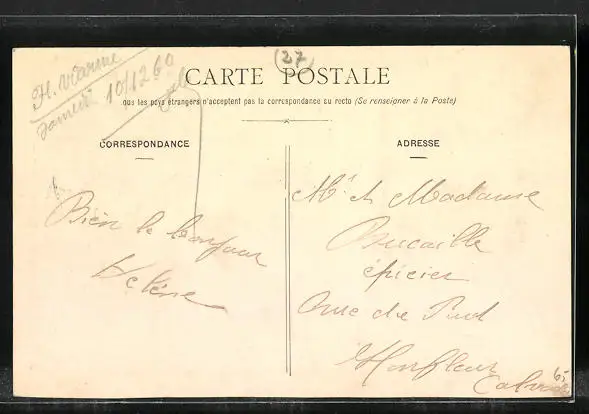 (27)
H. Marine
samedi 10/12 60
CARTE POSTALE
ous les pays étrangers n'acceptent pas la correspondance au recto (Se renseigner à la Poste)
CORRESPONDANCE
ADRESSE
Bien le bonjour
Hélène
Mr et Madame
Bucaille
épicier
Rue du Puit
Honfleur
Calvados